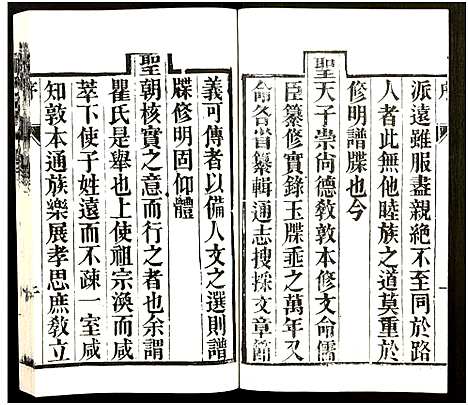 序
派遠雖服盡親絶不至同於路
人者此無他睦族之道莫重於
修明譜牒也今
聖天子崇尚德教敦本修文命儒
臣纂修實錄玉牒垂之萬年又
命各省纂輯通志搜採文章節
義可傳者以備人文之選則譜
牒修明固仰體
聖朝核實之意而行之者也余謂
瞿氏是舉也上使祖宗渙而咸
萃下使子姓遠而不疎一室咸
知敦本通族樂展孝思庶教立
序
二